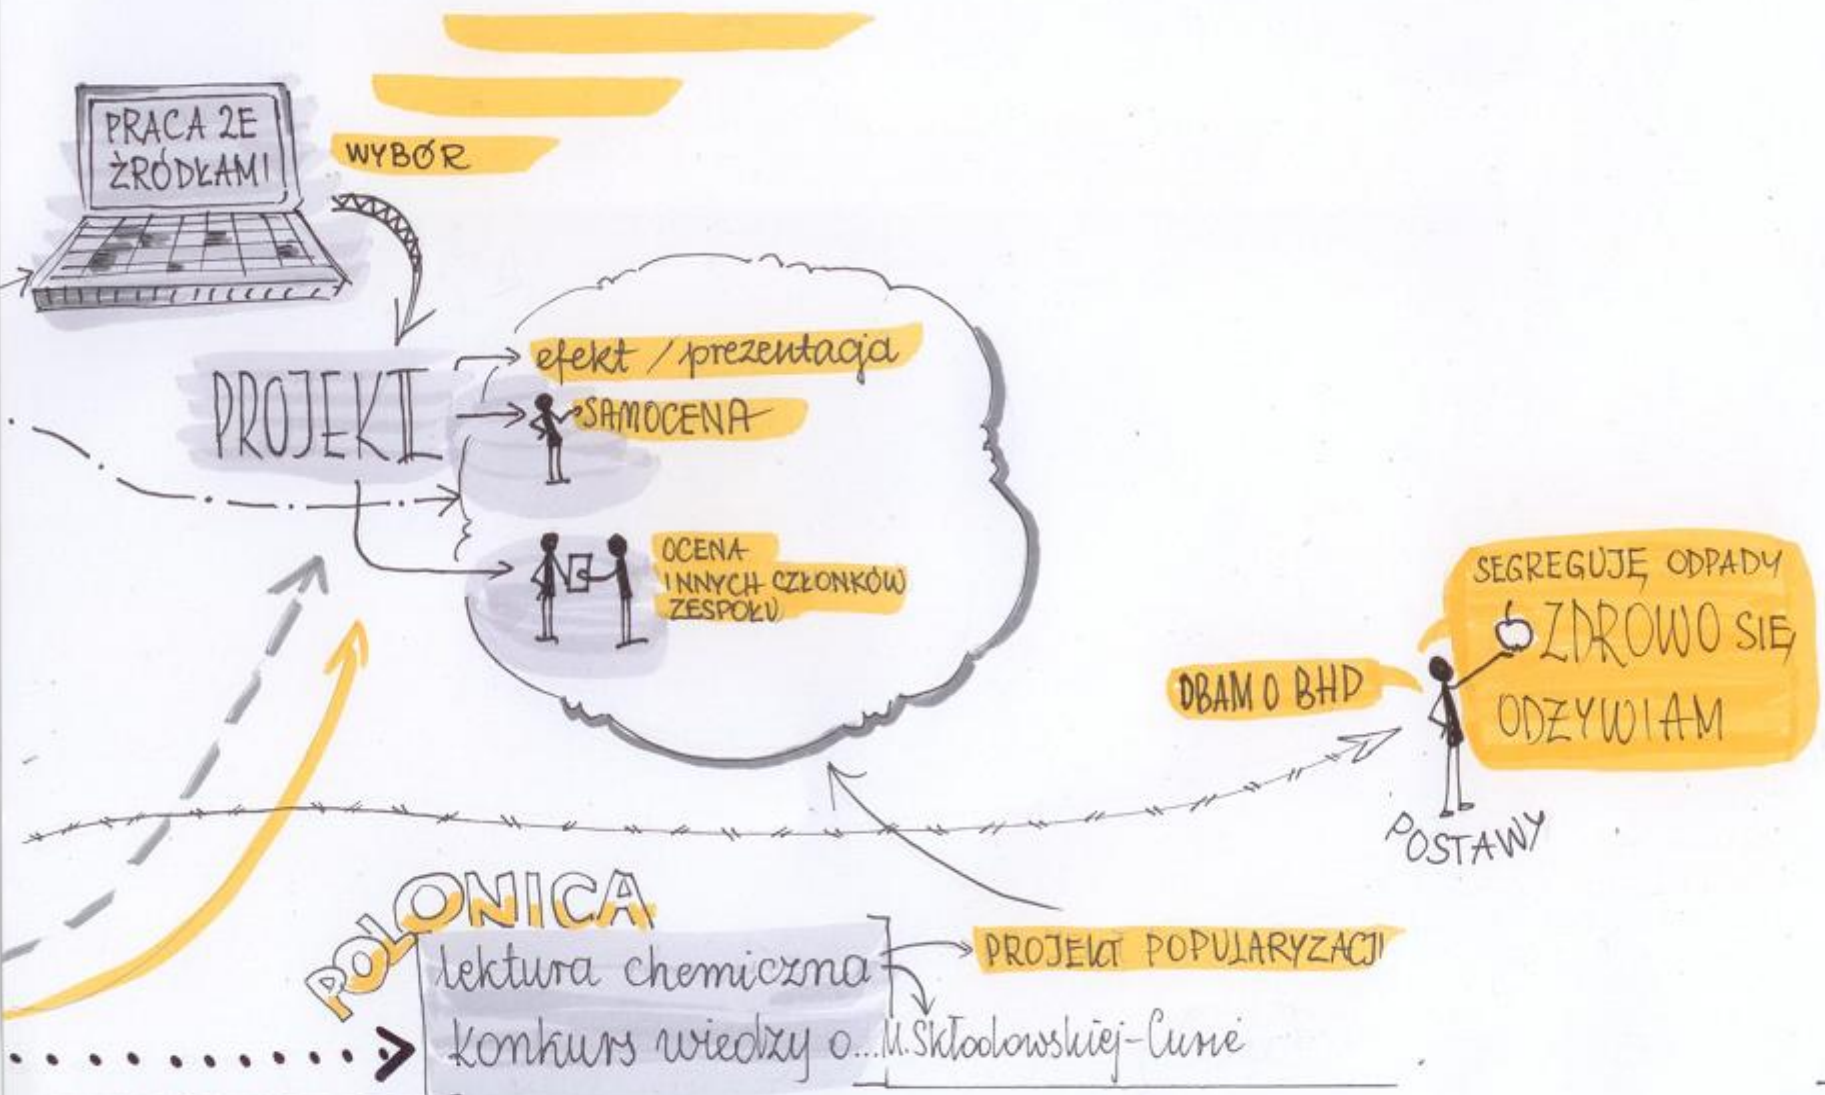 PRACA ZE
ŹRÓDŁAMI
WYBÓR
PROJEKT
efekt / prezentacja
SAMOCENA
OCENA
INNYCH CZŁONKÓW
ZESPOŁU
SEGREGUJĘ ODPADY
ZDROWO SIĘ
ODŻYWIAM
DBAM O BHP
POSTAWY
POLONICA
lektura chemiczna
PROJEKT POPULARYZACJI
konkurs wiedzy o... M. Skłodowskiej-Curie